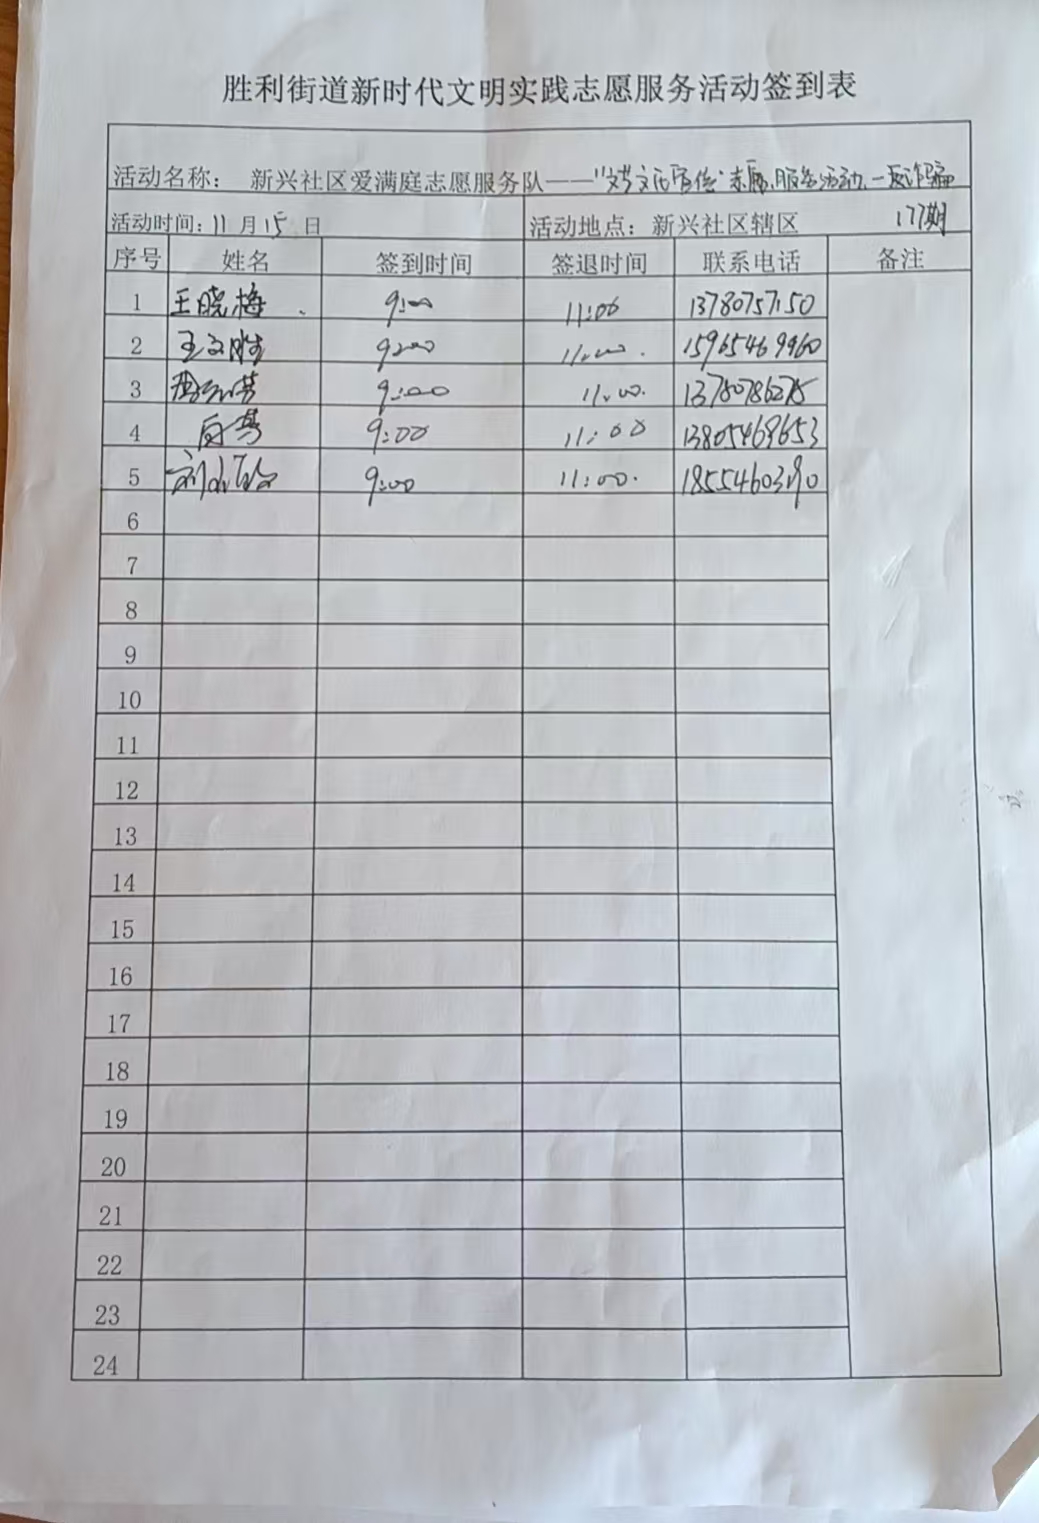 胜利街道新时代文明实践志愿服务活动签到表
活动名称： 新兴社区爱满庭志愿服务队——"文艺文化宣传"志愿服务活动—反诈骗
活动时间：11月15日 活动地点：新兴社区辖区 177期
序号 姓名 签到时间 签退时间 联系电话 备注
1 王晓梅 9:00 11:00 13780757150
2 王文胜 9:00 11:00 15965469960
3 9:00 11:00 13780786275
4 9:00 11:00 13805469653
5 9:00 11:00
6
7
8
9
10
11
12
13
14
15
16
17
18
19
20
21
22
23
24